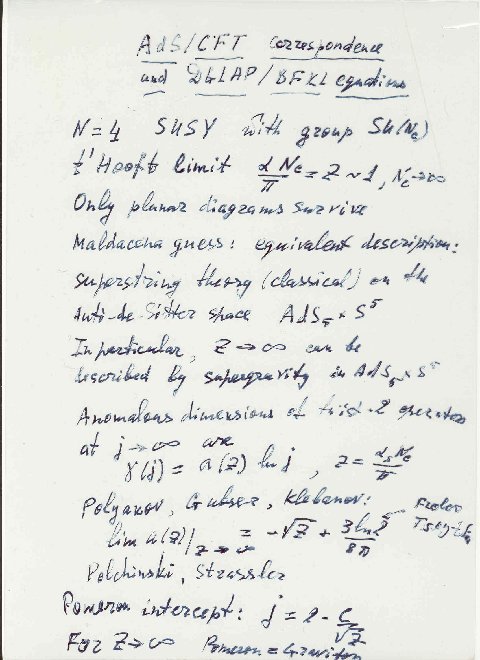 AdS/CFT correspondence
and DGLAP/BFKL equations
N=4 SUSY with group SU(Nc)
t'Hooft limit αNc/π = z ~ 1, Nc→∞
Only planar diagrams survive
Maldacena guess: equivalent description:
superstring theory (classical) on the
Anti-de-Sitter space AdS₅ × S⁵
In particular, z→∞ can be
described by supergravity in AdS₅ × S⁵
Anomalous dimensions of twist-2 operators
at j→∞ are
γ(j) = a(z) ln j, z = αsNc/π
Polyakov, Gubser, Klebanov: Frolov
lim a(z)|z→∞ = -√z + 3ln2/8π Tseytlin
Polchinski, Strassler
Pomeron intercept: j = 2 - C/√z
For z→∞ Pomeron = Graviton